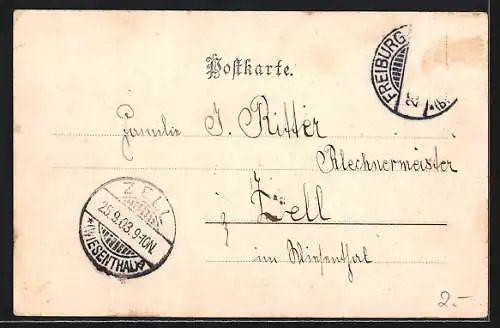 Postkarte.
FREIBURG
25
*(B
Familie J. Ritter
Blechnermeister
Zell
im Wiesenthal
ZELL
25.9.03.9-10N.
*(WIESENTHAL)*
2.-